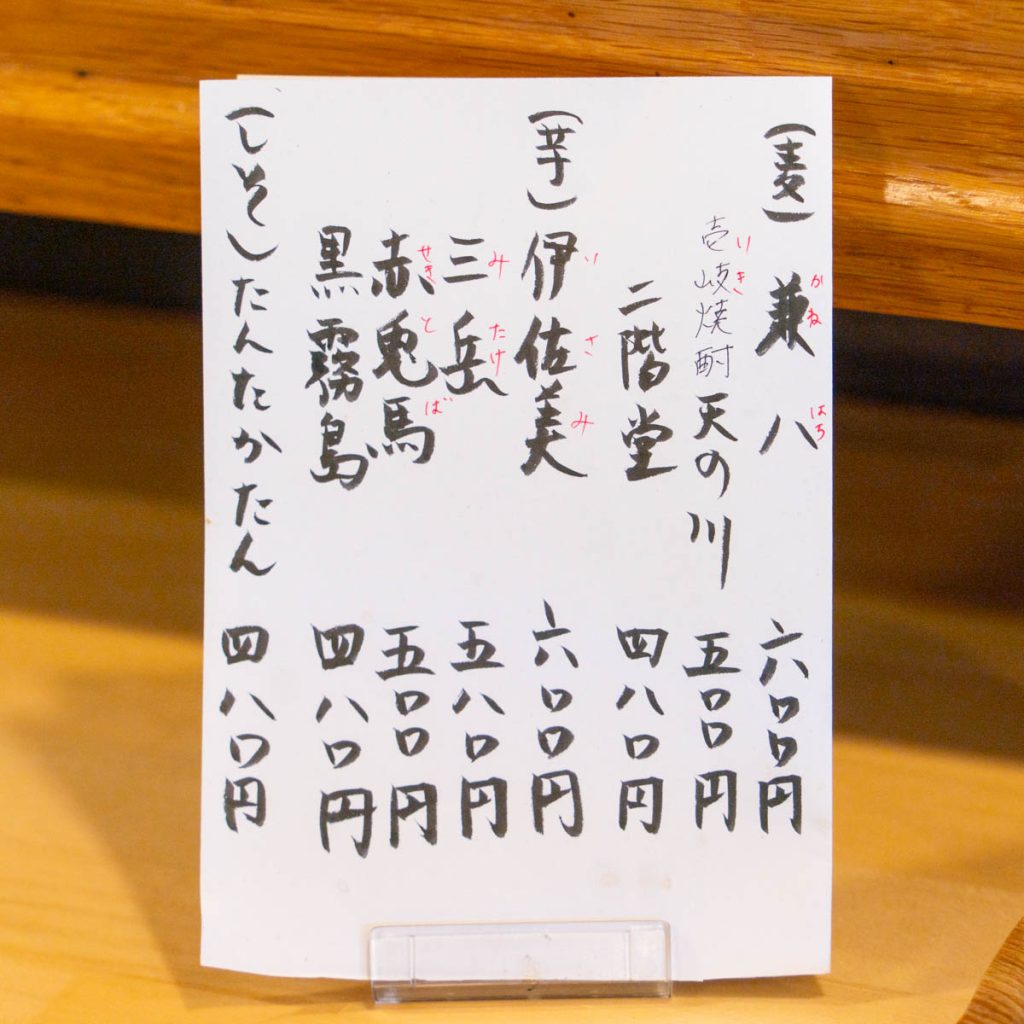 (麦) 兼八 六〇〇円
かね はち
壱岐焼酎 天の川 五〇〇円
いき
二階堂 四八〇円
(芋) 伊佐美 六〇〇円
い さ み
三岳 五八〇円
み たけ
赤兎馬 五〇〇円
せき と ば
黒霧島 四八〇円
(しそ) たんたかたん 四八〇円